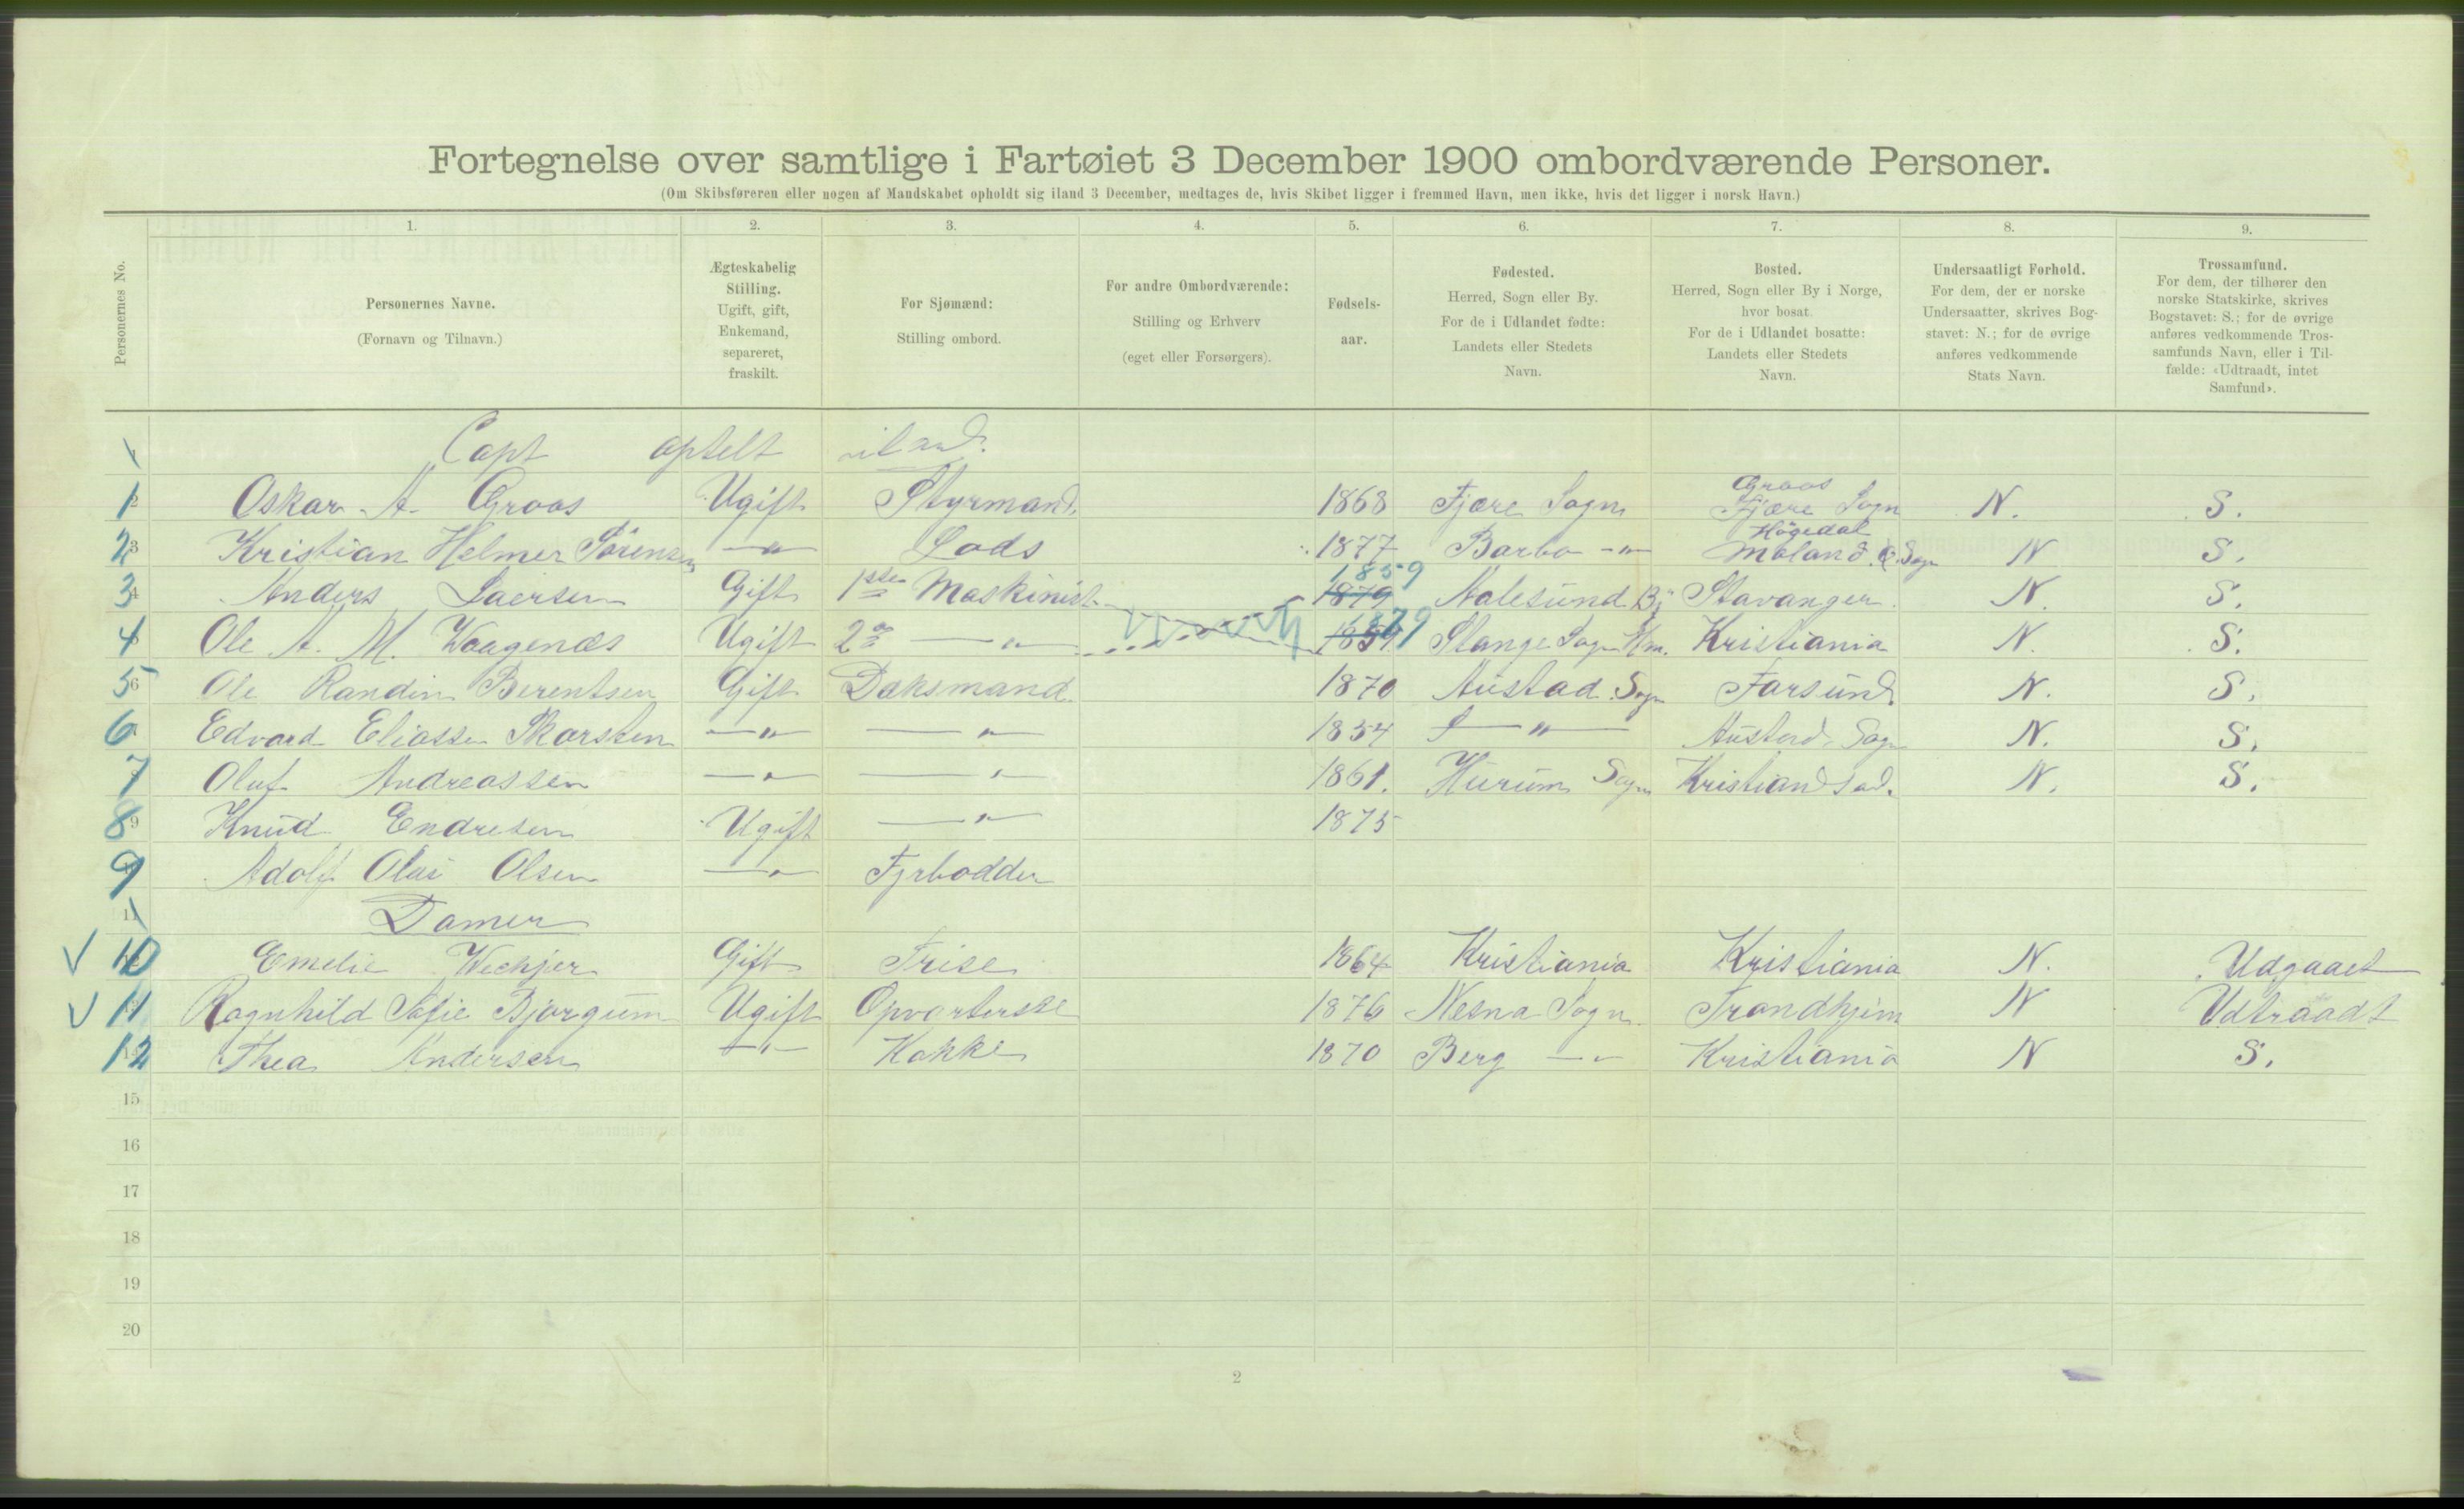 Fortegnelse over samtlige i Fartøiet 3 December 1900 ombordværende Personer.
(Om Skibsføreren eller nogen af Mandskabet opholdt sig iland 3 December, medtages de, hvis Skibet ligger i fremmed Havn, men ikke, hvis det ligger i norsk Havn.)
Personernes No.
1. 2. 3. 4. 5. 6. 7. 8. 9.
Personernes Navne.
(Fornavn og Tilnavn.)
Ægteskabelig
Stilling.
Ugift, gift,
Enkemand,
separeret,
fraskilt.
For Sjømænd:
Stilling ombord.
For andre Ombordværende:
Stilling og Erhverv
(eget eller Forsørgers).
Fødsels-
aar.
Fødested.
Herred, Sogn eller By.
For de i Udlandet fødte:
Landets eller Stedets
Navn.
Bosted.
Herred, Sogn eller By i Norge,
hvor bosat.
For de i Udlandet bosatte:
Landets eller Stedets
Navn.
Undersaatligt Forhold.
For dem, der er norske
Undersaatter, skrives Bog-
stavet: N.; for de øvrige
anføres vedkommende
Stats Navn.
Trossamfund.
For dem, der tilhører den
norske Statskirke, skrives
Bogstavet: S.; for de øvrige
anføres vedkommende Tros-
samfunds Navn, eller i Til-
fælde: «Udtraadt, intet
Samfund».
Capt optelt iland.
Groos
1 Oskar A. Groos Ugift Styrmand. 1868 Fjære Sogn Fjære Sogn N. S.
Högedal
2 Kristian Helmer Sörensen —"— Lods 1877 Barbo —"— Moland Ø. Sogn N S.
1859
3 Anders Laersen Gift 1ste Maskinist 1879 Aalesund By Stavanger. N. S.
1879
4 Ole A. M. Waagenæs Ugift 2den —"— 1859 Stange Sogn Hm. Kristiania N. S.
5 Ole Randin Berentsen Gift Dæksmand. 1870 Austad Sogn Farsund. N. S.
6 Edvard Eliassen Skarsten —"— —"— 1854 —"— Austad Sogn N. S.
7 Oluf Andreassen —"— —"— 1861. Hurum Sogn Kristiansad. N. S.
8 Knud Endresen Ugift —"— 1875
9 Adolf Olai Olsen —"— Fyrbødder
11 Damer
10 Emelie Wechjer Gift Trise 1864 Kristiania Kristiania N. Udgaaet
11 Ragnhild Sofie Bjørgum Ugift Opvarterske 1876 Nesna Sogn. Trondhjem N Udtraadt
12 Thea Andersen —"— Kokke 1870 Berg —"— Kristiania N S.
15
16
17
18
19
20
2